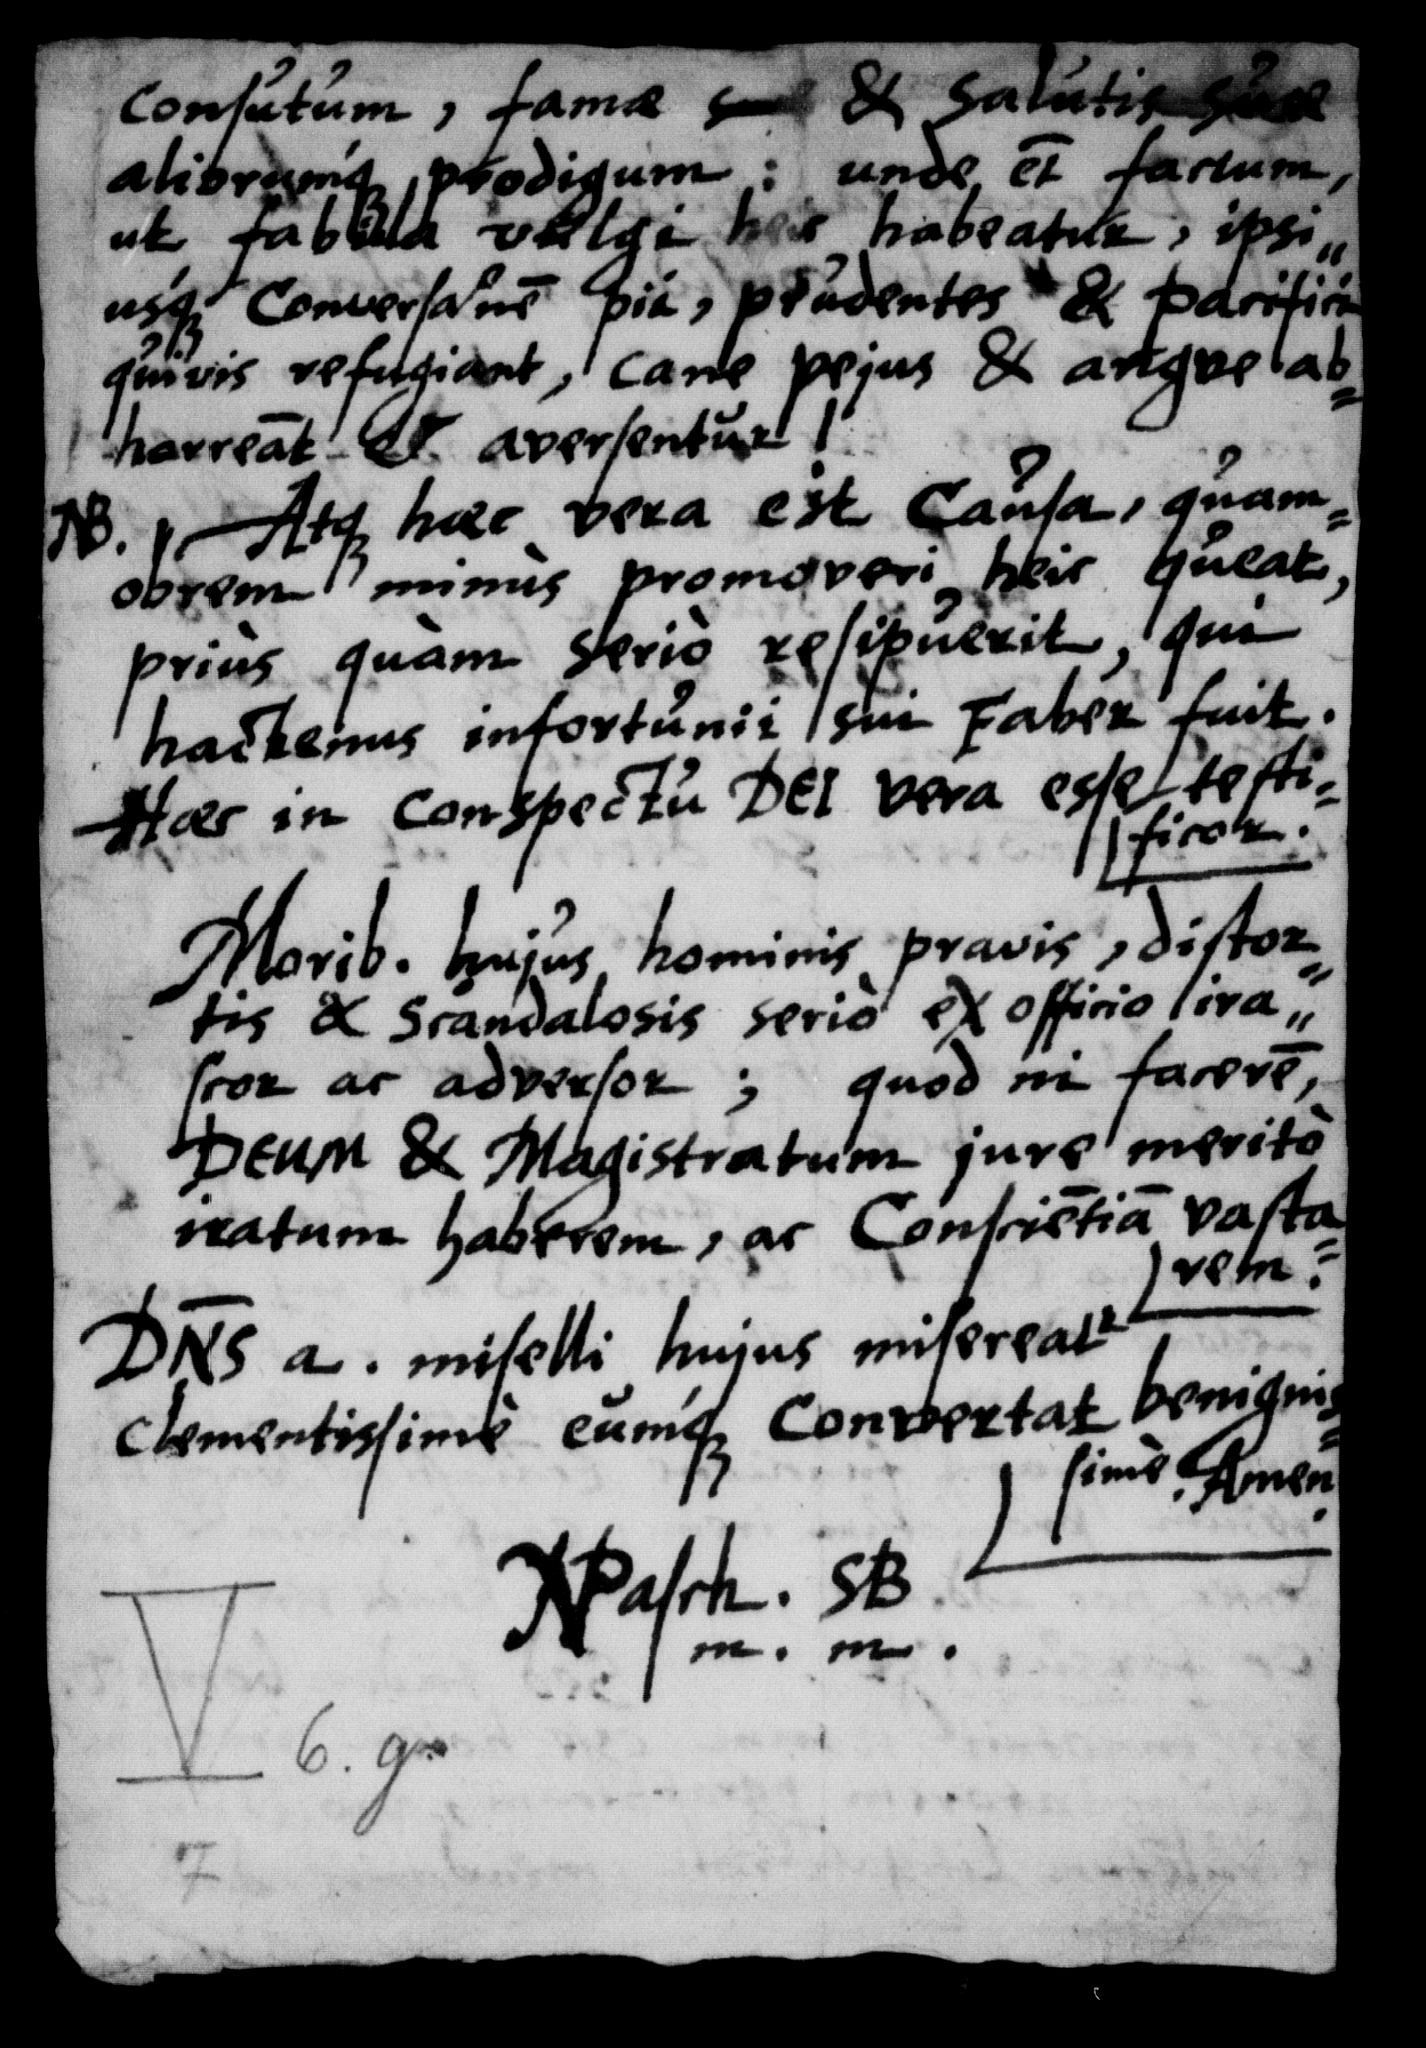 consutum, famæ & salutis suæ
aliorumq́ꝫ prodigum: unde et factum,
ut fabula vulgi heic habeatur, ipsi„
usq́ꝫ Conversaonē pii, prudentes & pacifici
quivis refugiant, cane pejus & angve ab=
horreāt & aversentur!
NB. Atqꝫ hæc vera est Causa, quam=
obrem minùs promoveri heic queat,
priùs quàm seriò resipuerit, qui
hactenus infortunii sui Faber fuit.
Hæc in conspectu DEI vera esse testi=
ficor.
Morib. hujus hominis pravis, distor„
tis & scandalosis seriò ex officio ira„
scor ac adversor; quod ni facerē,
DEUM & Magistratum jure meritò
iratum haberem, ac Consciētiā vasta
rem.=
DN̄S a. miselli hujus misereatr
clementissimè eumq́ꝫ Convertat benignis=
simè. Amen.
NPasch. SB
m. m.
V 6. g
7